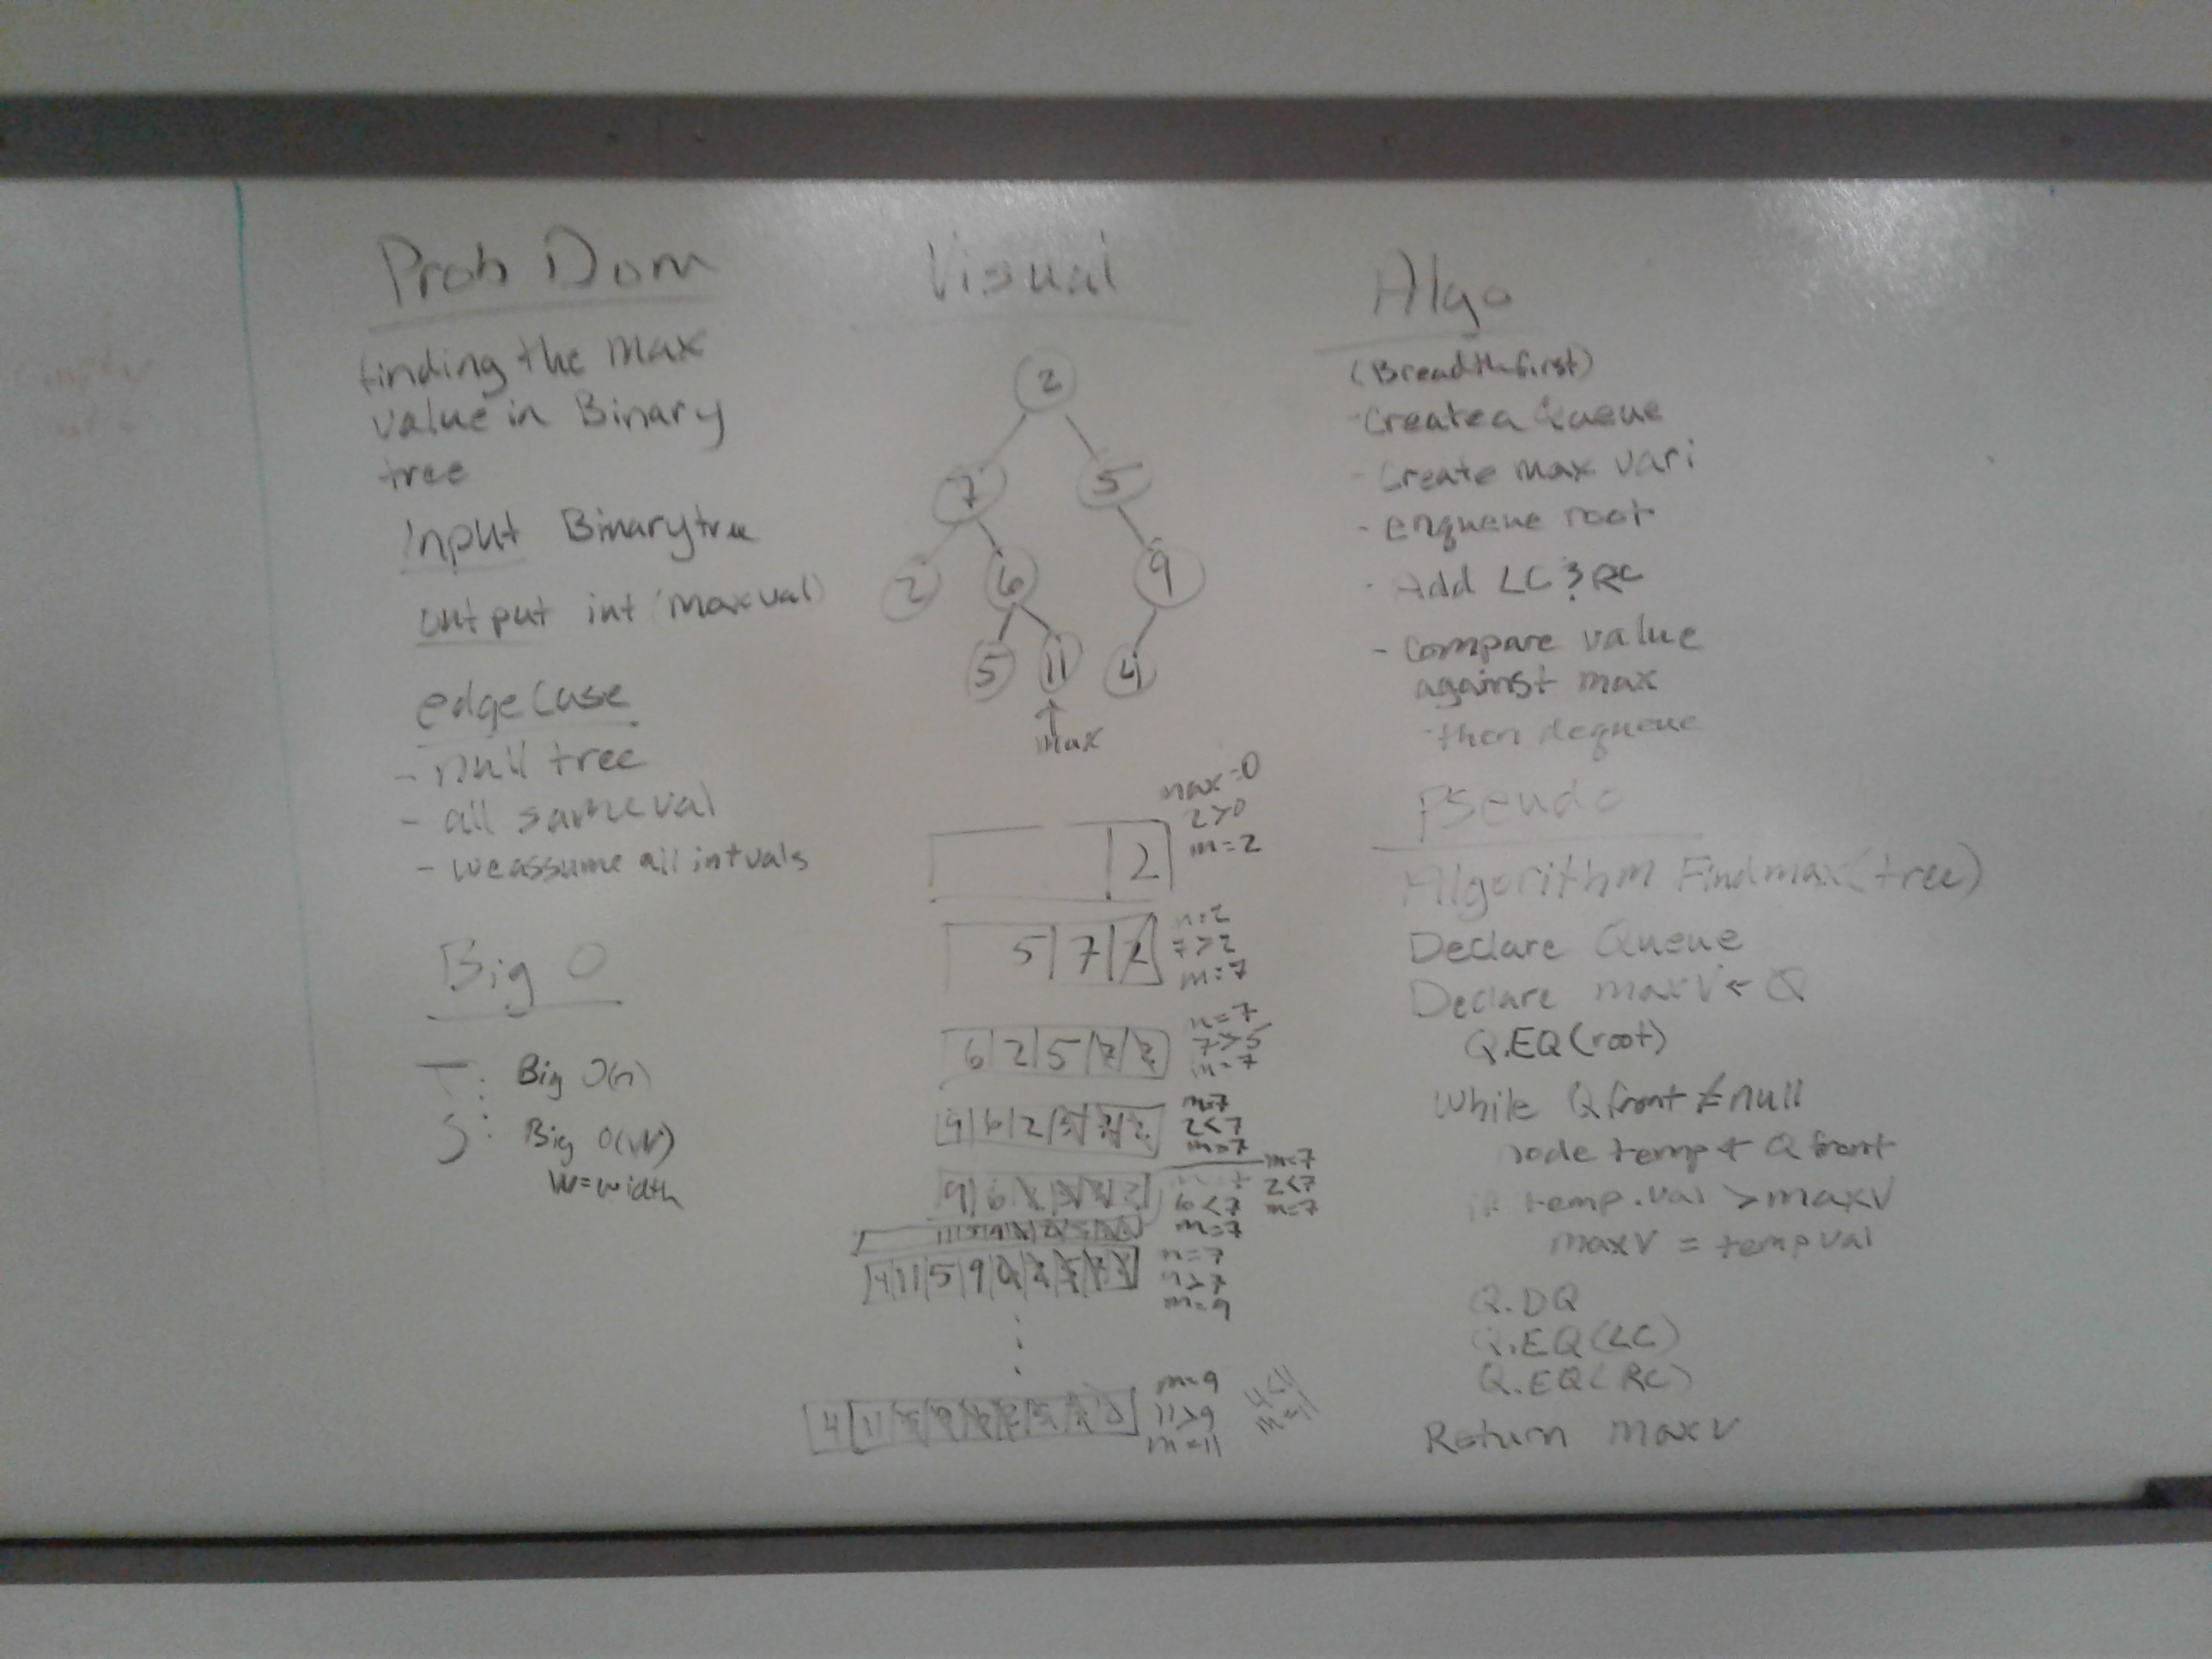 Prob Dom
finding the max
value in Binary
tree
Input Binarytree
output int (maxval)
edgeCase
- null tree
- all sameval
- we assume all int vals
Big O
T: Big O(n)
S: Big O(W)
W=width
Visual
2
7 5
2 6 9
5 11 4
↑
max
max=0
2>0
m=2
2
5|7|2
m=2
7>2
m=7
6|2|5|
m=7
7>5
m=7
9|6|2|
m=7
2<7
m=7
9|6|
m=7
2<7
m=7
6<7
m=7
4|11|5|9|
m=7
m=9
4|11|
m=9
11>9
m=11
4<11
m=11
Algo
(Breadth first)
- Create a Queue
- Create max vari
- enqueue root
- Add LC & RC
- Compare value
against max
- then dequeue
Pseudo
Algorithm Findmax(tree)
Declare Queue
Declare maxV ←
Q.EQ(root)
While Q front ≠ null
node temp ← Q front
if temp.val > maxV
maxV = tempval
Q.DQ
Q.EQ(LC)
Q.EQ(RC)
Return maxV